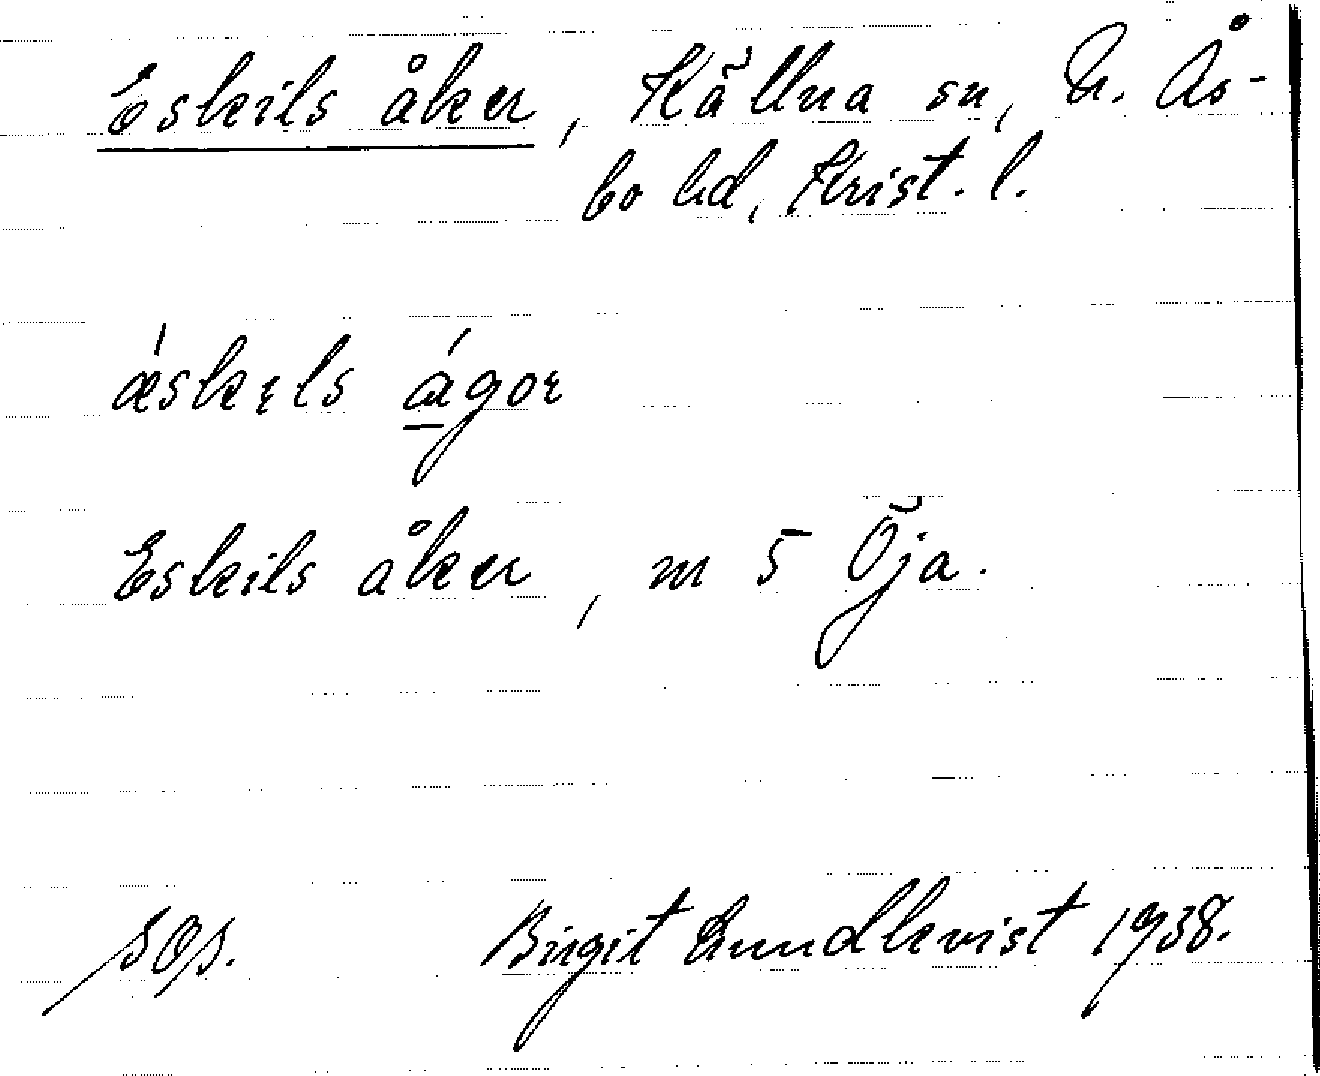 Eskils åker, Källna sn, N. Ås-
bo hd, Krist. l.
ǽskęls á̱gor
Eskils åker, m 5 Öja.
Birgit Lundkvist 1938.